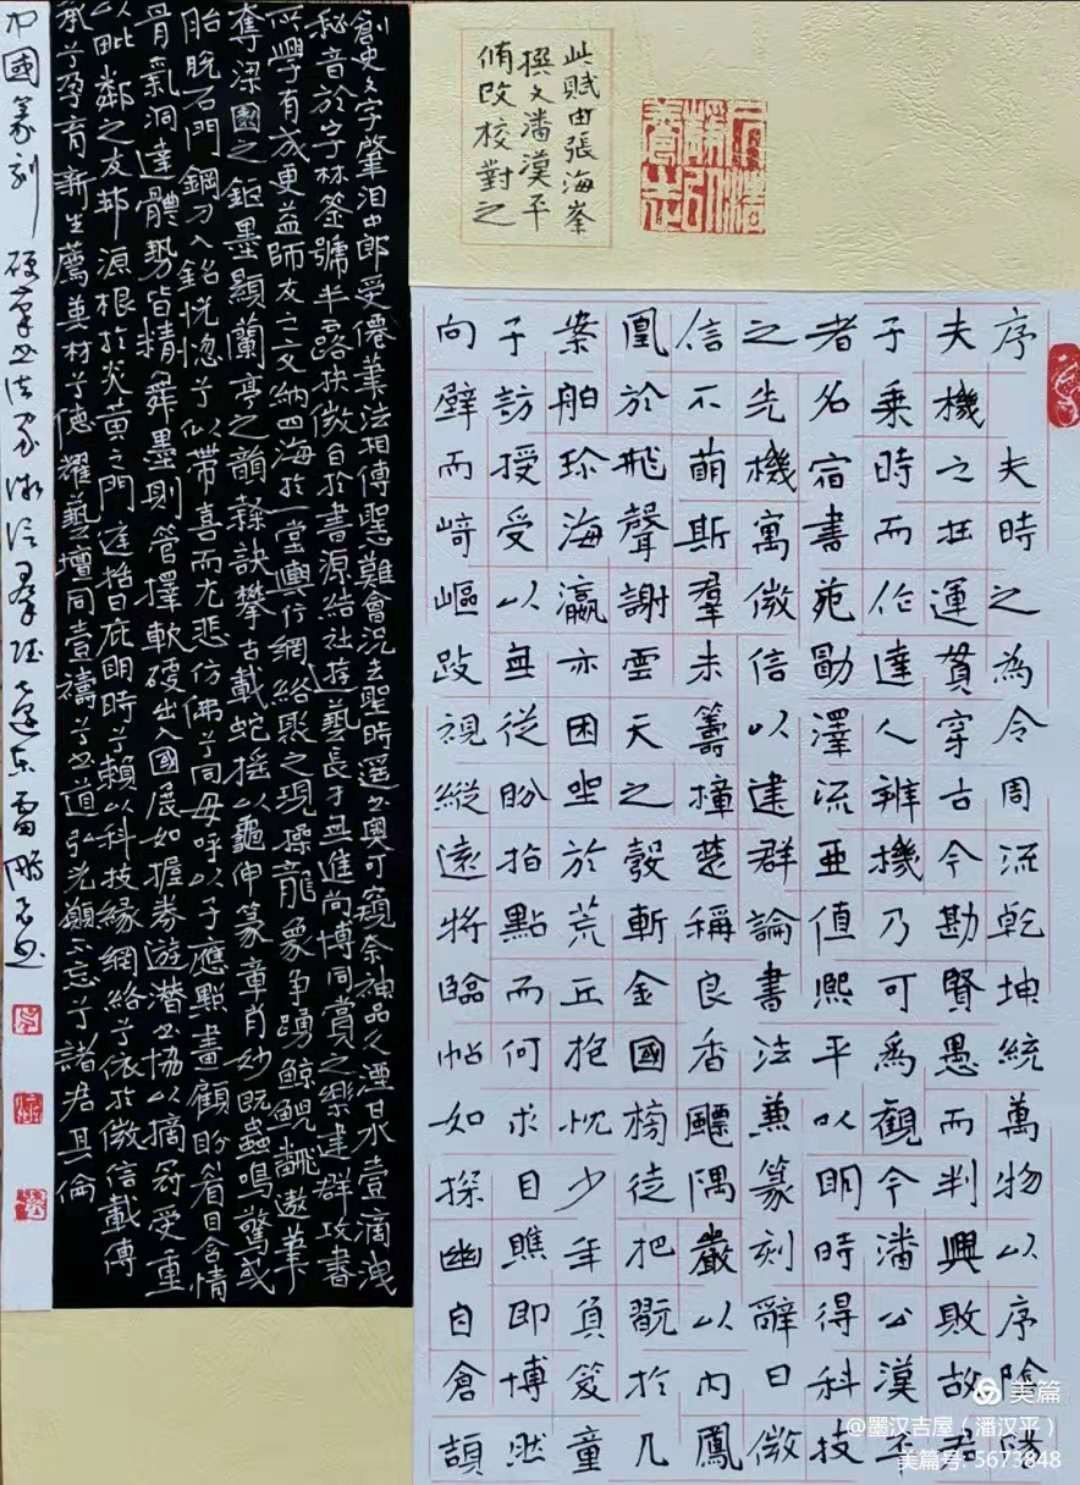 此賦由張海峯
撰文潘漢平
脩改校對之
序 夫時之為令周流乾坤統萬物以序陰陽
夫機之在運貫穿古今勘賢愚而判興敗故君
子乘時而作達人辨機乃可為觀今潘公漢平
者名宿書苑勖澤流亞值熙平以明時得科技
之先機寓微信以建群論書法兼篆刻辭曰微
信不萌斯羣未籌撞楚稱良香飄隅巖以內鳳
凰於飛聲謝雲天之彀斬金國榜徒把翫於几
案舶珍海瀛亦困坐於荒丘抱忱少年負笈童
子訪授受以無從盼指點而何求目瞧即博然
向壁而崎嶇跂視縱遠將臨帖如探幽自倉頡
創史文字肇泪中郎受僊筆法相傳聖難會況去聖時遥書奧可窺奈神品久湮甘水壹滴洩
秘音於字林签號半路抉微自於書源結社遊藝長才並進尚博同賞之樂建群攻書
所學有成更益師友之交納四海於一堂輿行網絡聚之現操龍象争踴鯨鯢翻遨筆
奪深國之鉅墨顯蘭亭之韻隸訣攀古載蛇摇以龜伸篆章肖妙既蟲鳴驚或
胎脱石門鋼刀入銘恍惚兮似带喜而尤悲仿佛兮同毋呼以子應點畫顧盼着目含情
骨氣洞達體勢皆精舞墨則管擇軟硬出入國展如握券遊潛書協以摘冠受重
以毗鄰之友邦源根於炎黄之門括日庇明時兮賴以科技緣網絡兮依於微信載傳
承兮孕育新生薦英材兮德耀藝壇同壹禱兮書道弘光願不忘兮諸君具倫
中國篆刻硬筆書法家微信羣賦遼东雷鵬書
美篇
@墨汉吉屋（潘汉平）
美篇号: 5673848